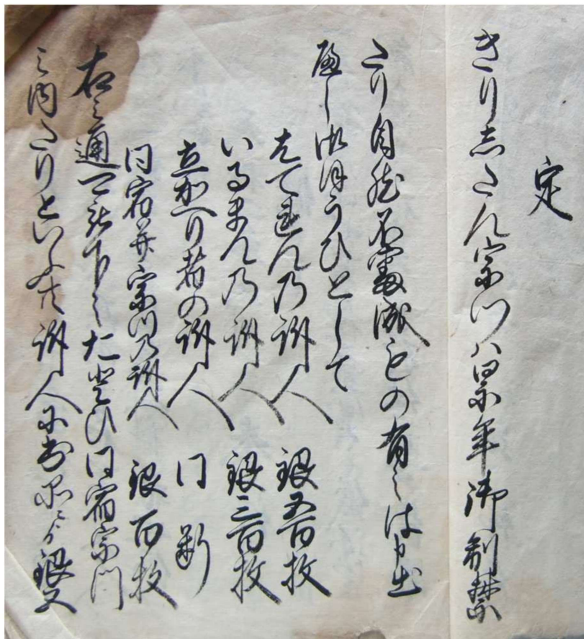 定
きりしたん宗門ハ累年御制禁
たり自然不審成もの有之は申出
へし御ほうひとして
はてれんの訴人 銀五百枚
いるまんの訴人 銀三百枚
立かへり者の訴人 同断
同宿并宗門の訴人 銀百枚
右之通可被下之たとひ同宿宗門
之内たりといふ共訴人に出る品により銀五